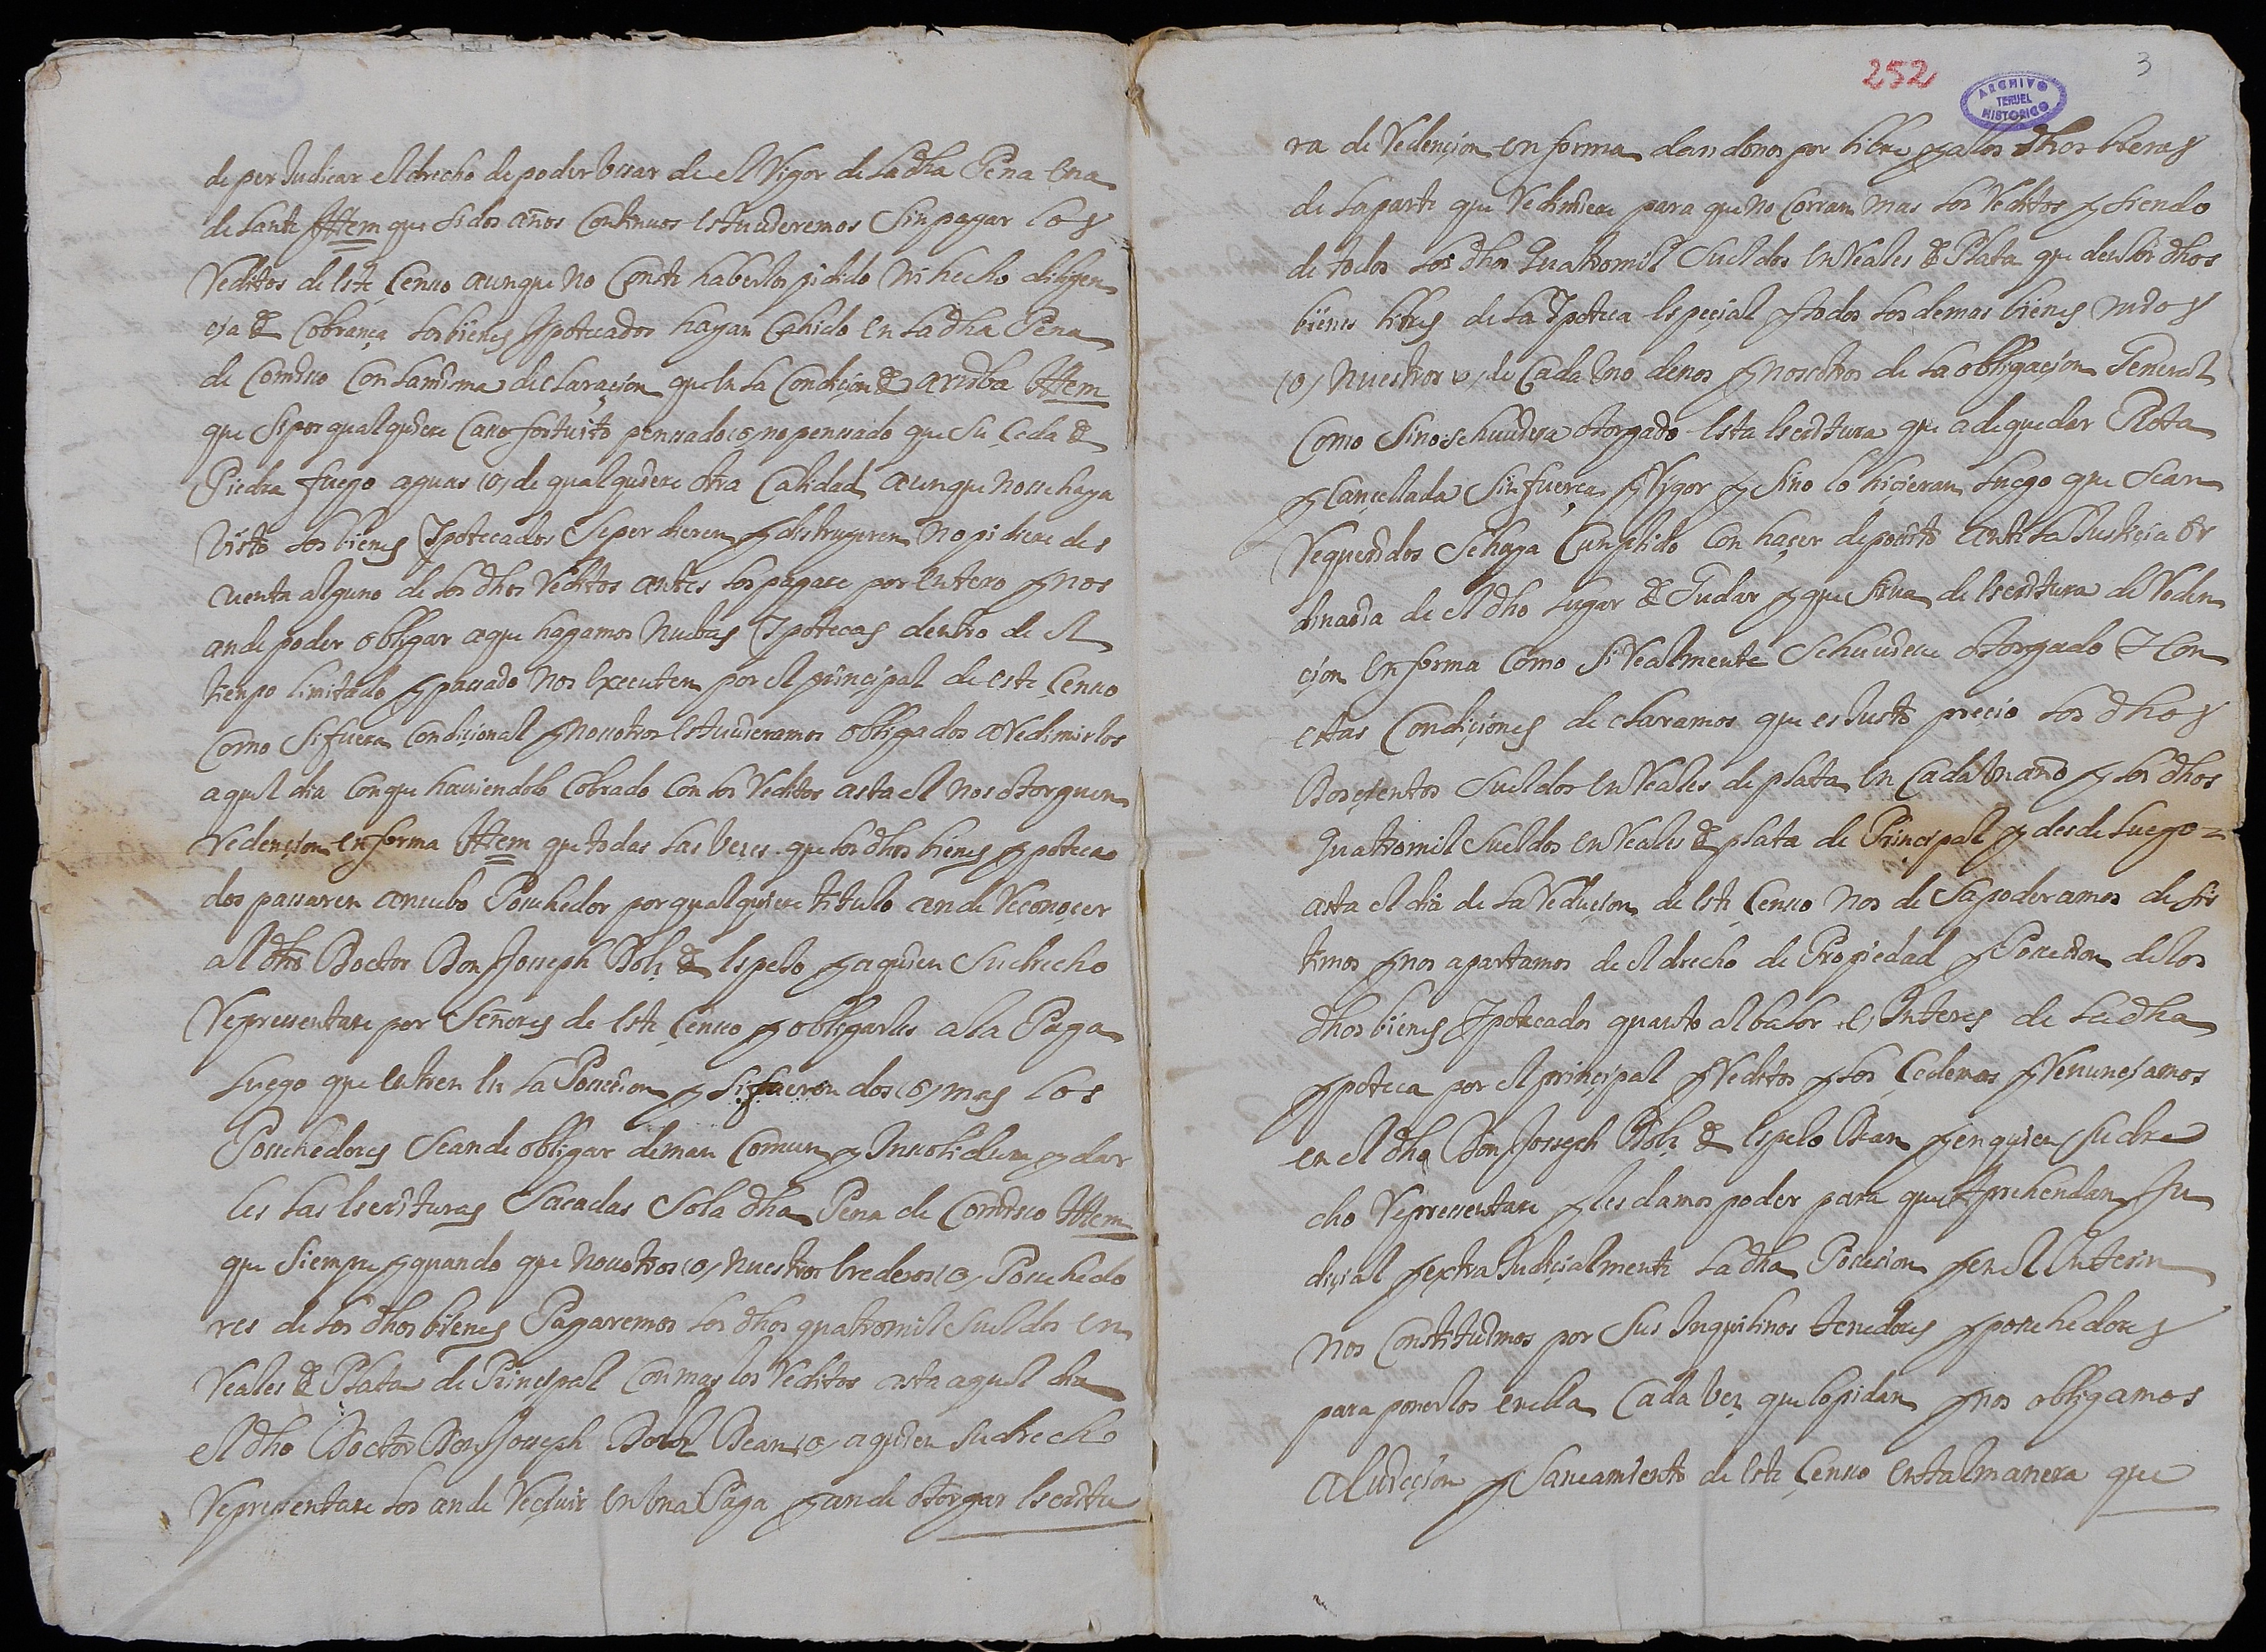 de per Judicar el drecho de poder Vssar de el Vigor de La dha Pena Vna
de Lante Ittem que si dos años Continuos estuuieremos Sin pagar los
Reditos de este Censo aunque no Conste haberlos pidido ni hecho diligen
cia de Cobrança los bienes Ipotecados hayan Cahido en La dha Pena
de Comisso Con La misma declaracion que en La Condicion de arriba Ittem
que si por qualquiere Casso fortuito penssado (o) no penssado que Su Ceda de
Piedra fuego aguas (o) de qualquiere otra Calidad aunque nosse haya
Visto Los bienes Ipotecados Se perdieren y distruyeren No pidiere des
cuenta alguno de Los dhos Reditos antes Los pagare por entero y nos
an de poder obligar a que hagamos Nuebas Ipotecas dentro de el
tienpo limitado y passado Nos executen por el principal de este Censo
Como Si fuera Condicional y Nosotros estuuieramos obligados a Redimirlos
aquel dia Con que hauiendolo Cobrado Con Los Reditos asta el Nos otorguen
Redencion en forma Ittem que todas Las Veces que Los dhos bienes ypoteca
dos passaren a nuebo Posehedor por qualquiere titulo an de Reconocer
al dho Doctor Don Josseph Dolz de Espelo y a quien Su drecho
Representare por Señores de este Censo y obligarles a la Paga
Luego que entren en La Posession y Si fueren dos (o) mas los
Posehedores Se an de obligar de man Comun y Insolidum y dar
les Las Escrituras Sacadas Sola dha Pena de Comisso Ittem
que Siempre y quando que Nosotros (o) Nuestros Erederos (o) Posehedo
res de Los dhos bienes Pagaremos Los dhos quatromil Sueldos en
Reales de Plata de Principal Con mas los Reditos asta aquel dia
el dho Doctor Don Josseph Dolz Dean (o) a quien Su drecho
Representare Los an de Reciuir en Vna Paga y an de otorgar Escritu
252 3
ARCHIVO
TERUEL
HISTORICO
ra de Redencion en forma dandonos por libres y a los dhos bienes
de La parte que Redimiere para que no Corran mas Los Reditos y siendo
de todos Los dhos Quatromil Sueldos en Reales de Plata queden Los dhos
bienes libres de La Ipoteca especial y todos Los demas bienes nros
(o) Nuestros (o) de Cada Vno de nos y Nosotros de La obligacion General
Como Si no se huuiera otorgado esta Escritura que a de quedar Rota
y Cancellada Sin fuerça y Vigor y Si no lo hicieran Luego que Sean
Requeridos Se haya Cunplido Con haçer deposito ante La Justicia or
dinaria de el dho Lugar de Gudar y que Sirua de Escritura de Reden
cion en forma Como Si Realmente Se huuiere otorgado Y Con
estas Condiciones declaramos que es Justo precio Los dhos
Doscientos Sueldos en Reales de plata en Cada Vn año y Los dhos
Quatromil Sueldos en Reales de plata de Principal y desde Luego
asta el dia de La Reducion de este Censo Nos de Sapoderamos desis
timos y nos apartamos de el drecho de Propiedad y Posession de los
dhos bienes Ipotecados quanto al balor e Interes de La dha
ypoteca por el principal y Reditos y Los Cedemos y Renunciamos
en el dho Don Josseph Dolz de Espelo Dean y en quien Su dre
cho Representare y les damos poder para que Aprehendan Ju
dicial y extra Judicialmente La dha Posession y en el Interin
nos Constituimos por Sus Inquilinos tenedores y posehedores
para ponerlos en ella Cada Vez que lo pidan y nos obligamos
a la euiccion y Saneamiento de este Censo en tal manera que